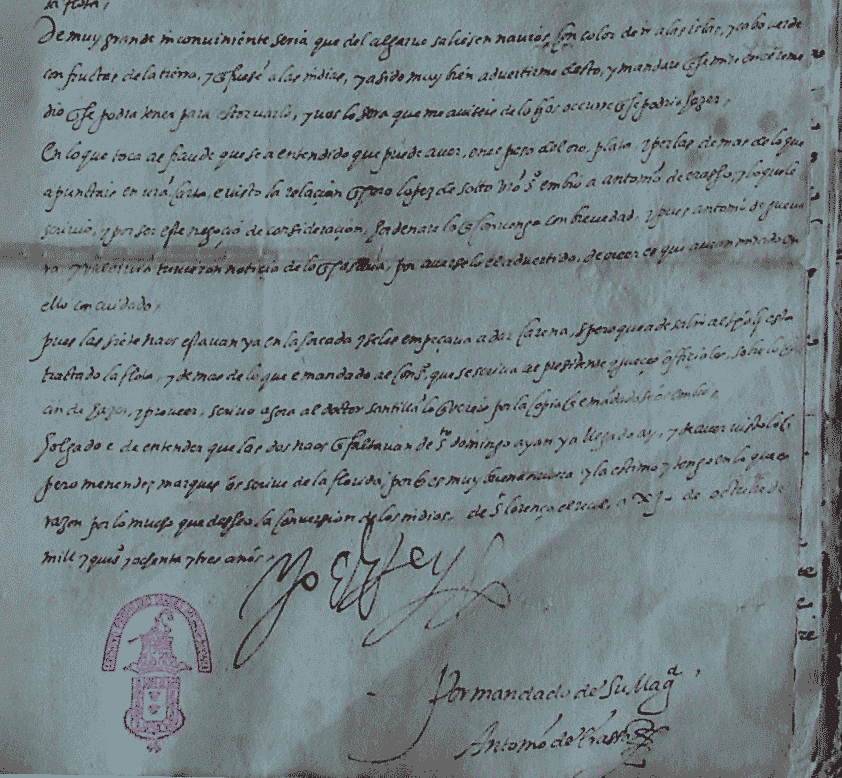 la flota,
De muy grande inconviniente seria que del algarve saliesen navios, con color de ir a las islas, y cabo verde
con fructas de la tierra, y q̃ fuesē a las indias, y a sido muy bien advertirme desto, y mandare q̃ se mire en el reme
dio q̃ se podra tener para estorvarlo, y vos lo sera que me aviseis de lo q̃ os occurre q̃ se podria hazer,
En lo que toca al fraude que se a entendido que puede aver, en el peso del oro, plata, y perlas de mas de lo que
apuntais en vr̃a carta, e visto la relacion q̃ pero lopez de solto embio a antonio de erasso, y lo que le
scrivio, y por ser este negocio de consideracion, hordenare lo q̃ convenga con brevedad, y pues antonio de gueva
ra tuvieron noticia de lo q̃ passava, por averselo el advertido, de creer es que avran mirado en
ello con cuidado,
pues las siete naos estavan ya en la y se les empeçava a dar carena, espero que a de salir al tpõ q̃ esta
tractado la flota, y de mas de lo que e mandado al Cons.º que se scriva al presidente y jueces officiales, sobre lo q̃
an de hazer, y proveer, scrivo agora al doctor santillā lo q̃ vereis por la copia q̃ e mādado se os embie,
holgado e de entender que las dos naos q̃ faltavan de s.to domingo ayan ya llegado ay, y de aver visto lo q̃
pero menendez marques os scrive de la florida, porq̃ es muy buena nueva y la estimo y tengo en lo que es
razon por lo mucho que desseo la conversion de los indios, de s.t lorenço el real, a de octubre de
mill y quis y ochenta y tres años.
Yo el Rey
Por mandado de Su Magd.
Antonio de Erasso